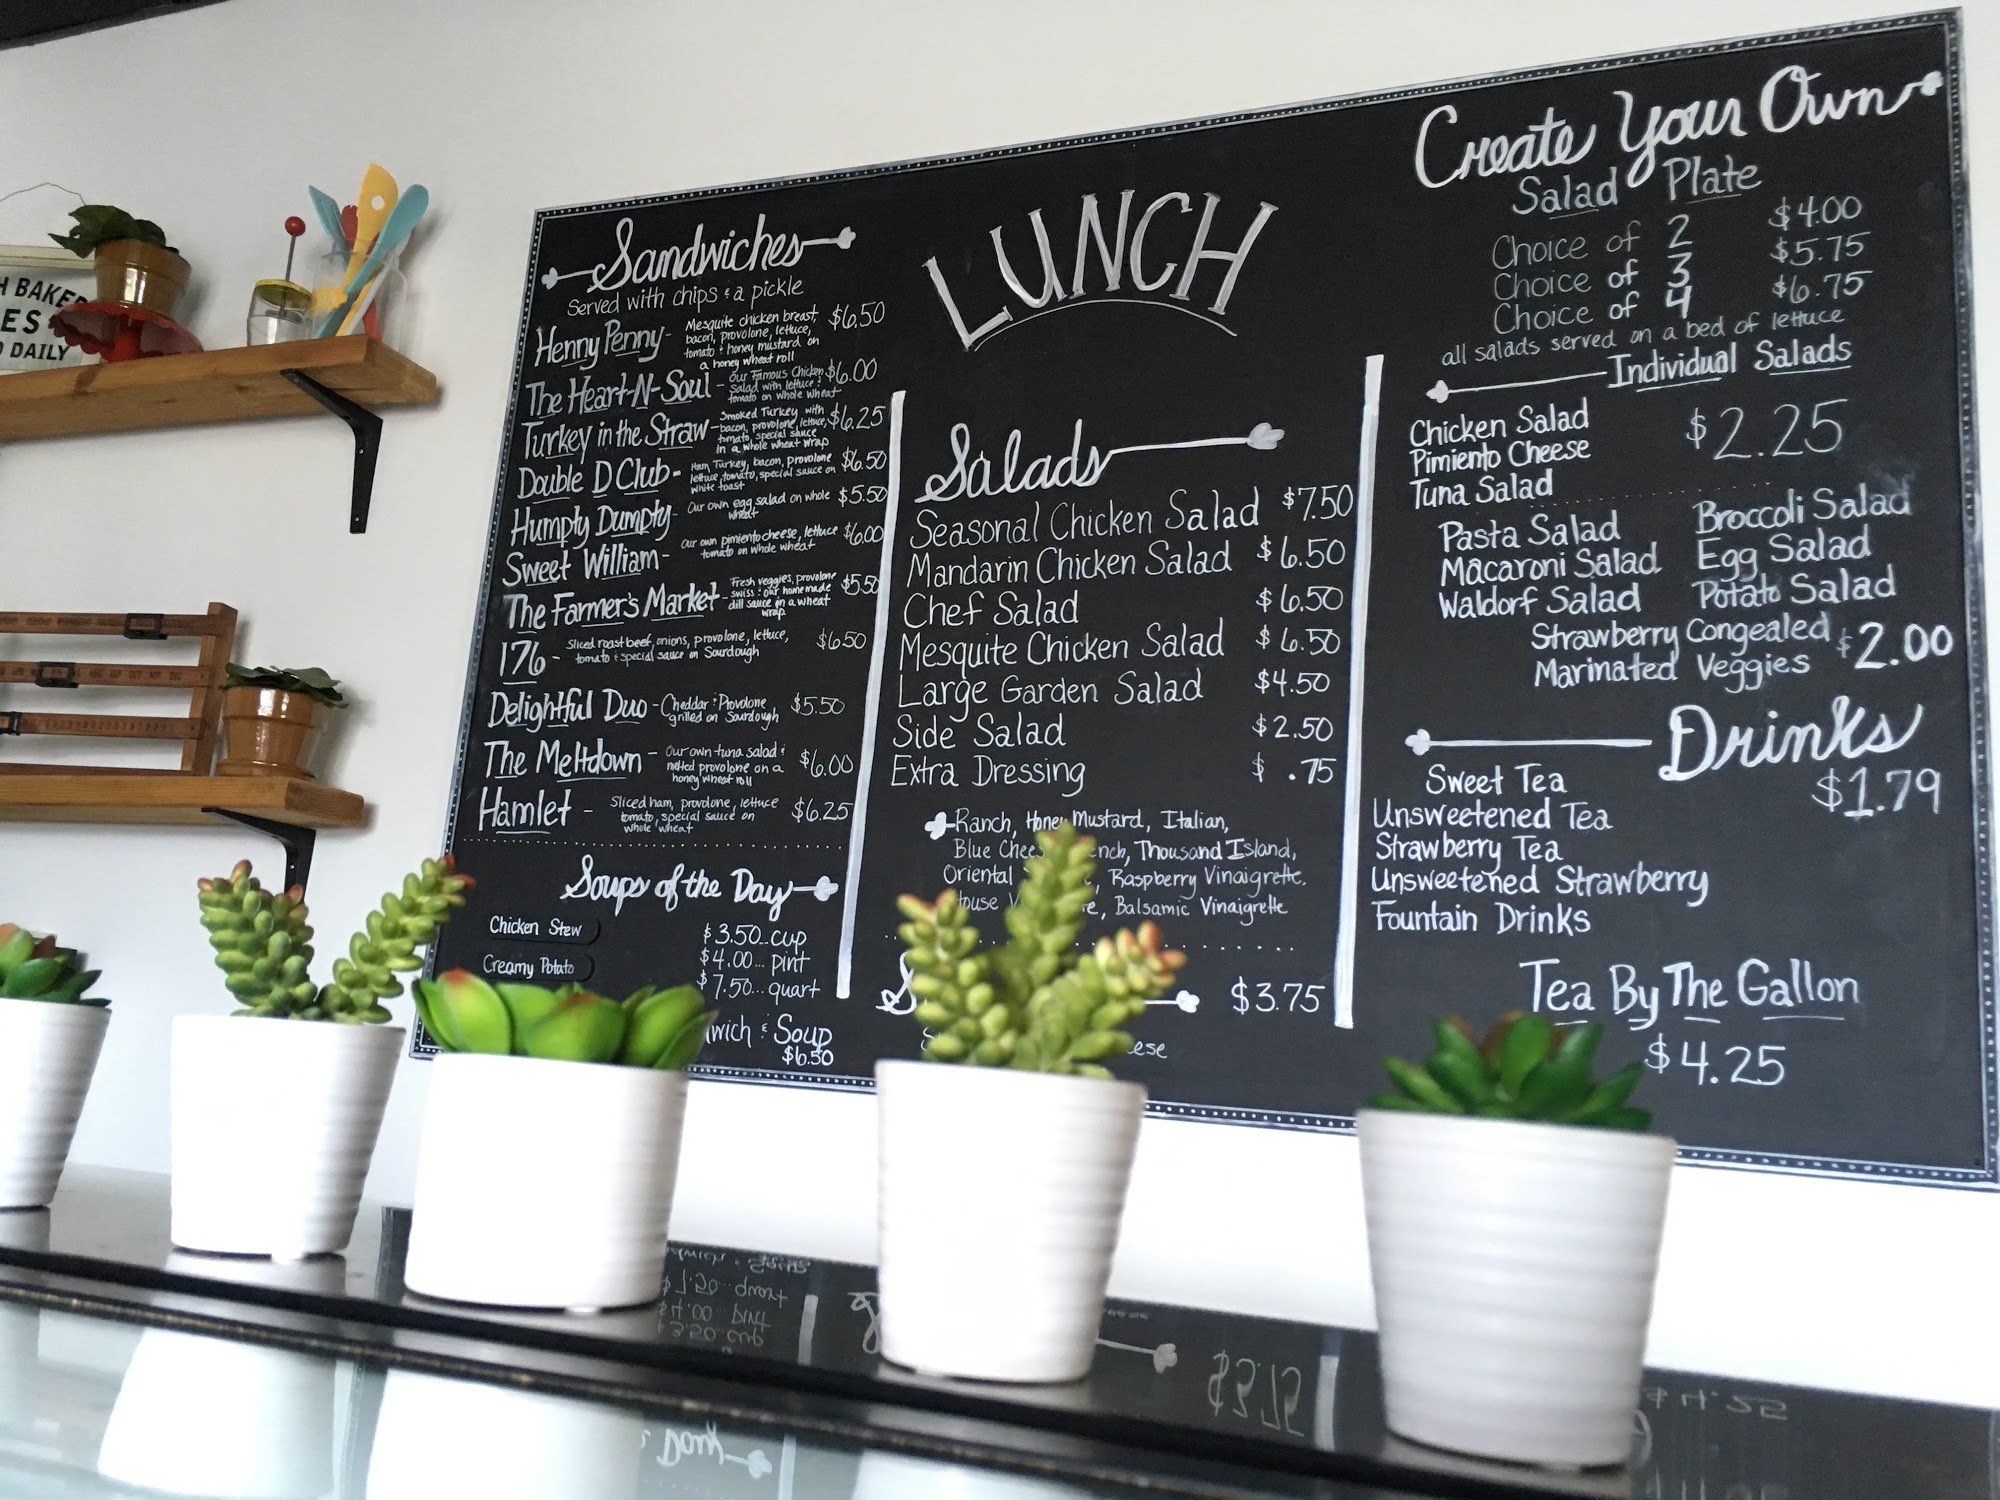 H BAKE
ES
DAILY
LUNCH
Sandwiches
Served with chips & a pickle
Henny Penny - Mesquite chicken breast, $6.50
bacon, provolone, lettuce,
tomato & honey mustard on
a honey wheat roll
The Heart-N-Soul - Our Famous Chicken $6.00
Salad with lettuce &
tomato on whole wheat
Turkey in the Straw - Smoked Turkey with $6.25
bacon, provolone, lettuce,
tomato, special sauce
in a whole wheat wrap
Double D Club - Ham, Turkey, bacon, provolone $6.50
lettuce, tomato, special sauce on
white toast
Humpty Dumpty - Our own egg salad on whole $5.50
wheat
Sweet William - Our own pimiento cheese, lettuce $6.00
tomato on whole wheat
The Farmer's Market - Fresh veggies, provolone $5.50
swiss & our homemade
dill sauce in a wheat
wrap
176 - Sliced roast beef, onions, provolone, lettuce, $6.50
tomato & special sauce on Sourdough
Delightful Duo - Cheddar & Provolone, $5.50
grilled on Sourdough
The Meltdown - Our own tuna salad & $6.00
melted provolone on a
honey wheat roll
Hamlet - Sliced ham, provolone, lettuce $6.25
tomato, special sauce on
whole wheat
Soups of the Day
Chicken Stew
Creamy Potato
$3.50...cup
$4.00... pint
$7.50... quart
wich & Soup
$6.50
Salads
Seasonal Chicken Salad $7.50
Mandarin Chicken Salad $6.50
Chef Salad $6.50
Mesquite Chicken Salad $6.50
Large Garden Salad $4.50
Side Salad $2.50
Extra Dressing $ .75
Ranch, Honey Mustard, Italian,
Blue Chees ench, Thousand Island,
Oriental , Raspberry Vinaigrette,
ouse V e, Balsamic Vinaigrette
S $3.75
ese
Create Your Own
Salad Plate
Choice of 2 $4.00
Choice of 3 $5.75
Choice of 4 $6.75
all salads served on a bed of lettuce
Individual Salads
Chicken Salad
Pimiento Cheese $2.25
Tuna Salad
Pasta Salad Broccoli Salad
Macaroni Salad Egg Salad
Waldorf Salad Potato Salad
Strawberry Congealed $2.00
Marinated Veggies
Drinks
$1.79
Sweet Tea
Unsweetened Tea
Strawberry Tea
Unsweetened Strawberry
Fountain Drinks
Tea By The Gallon
$4.25